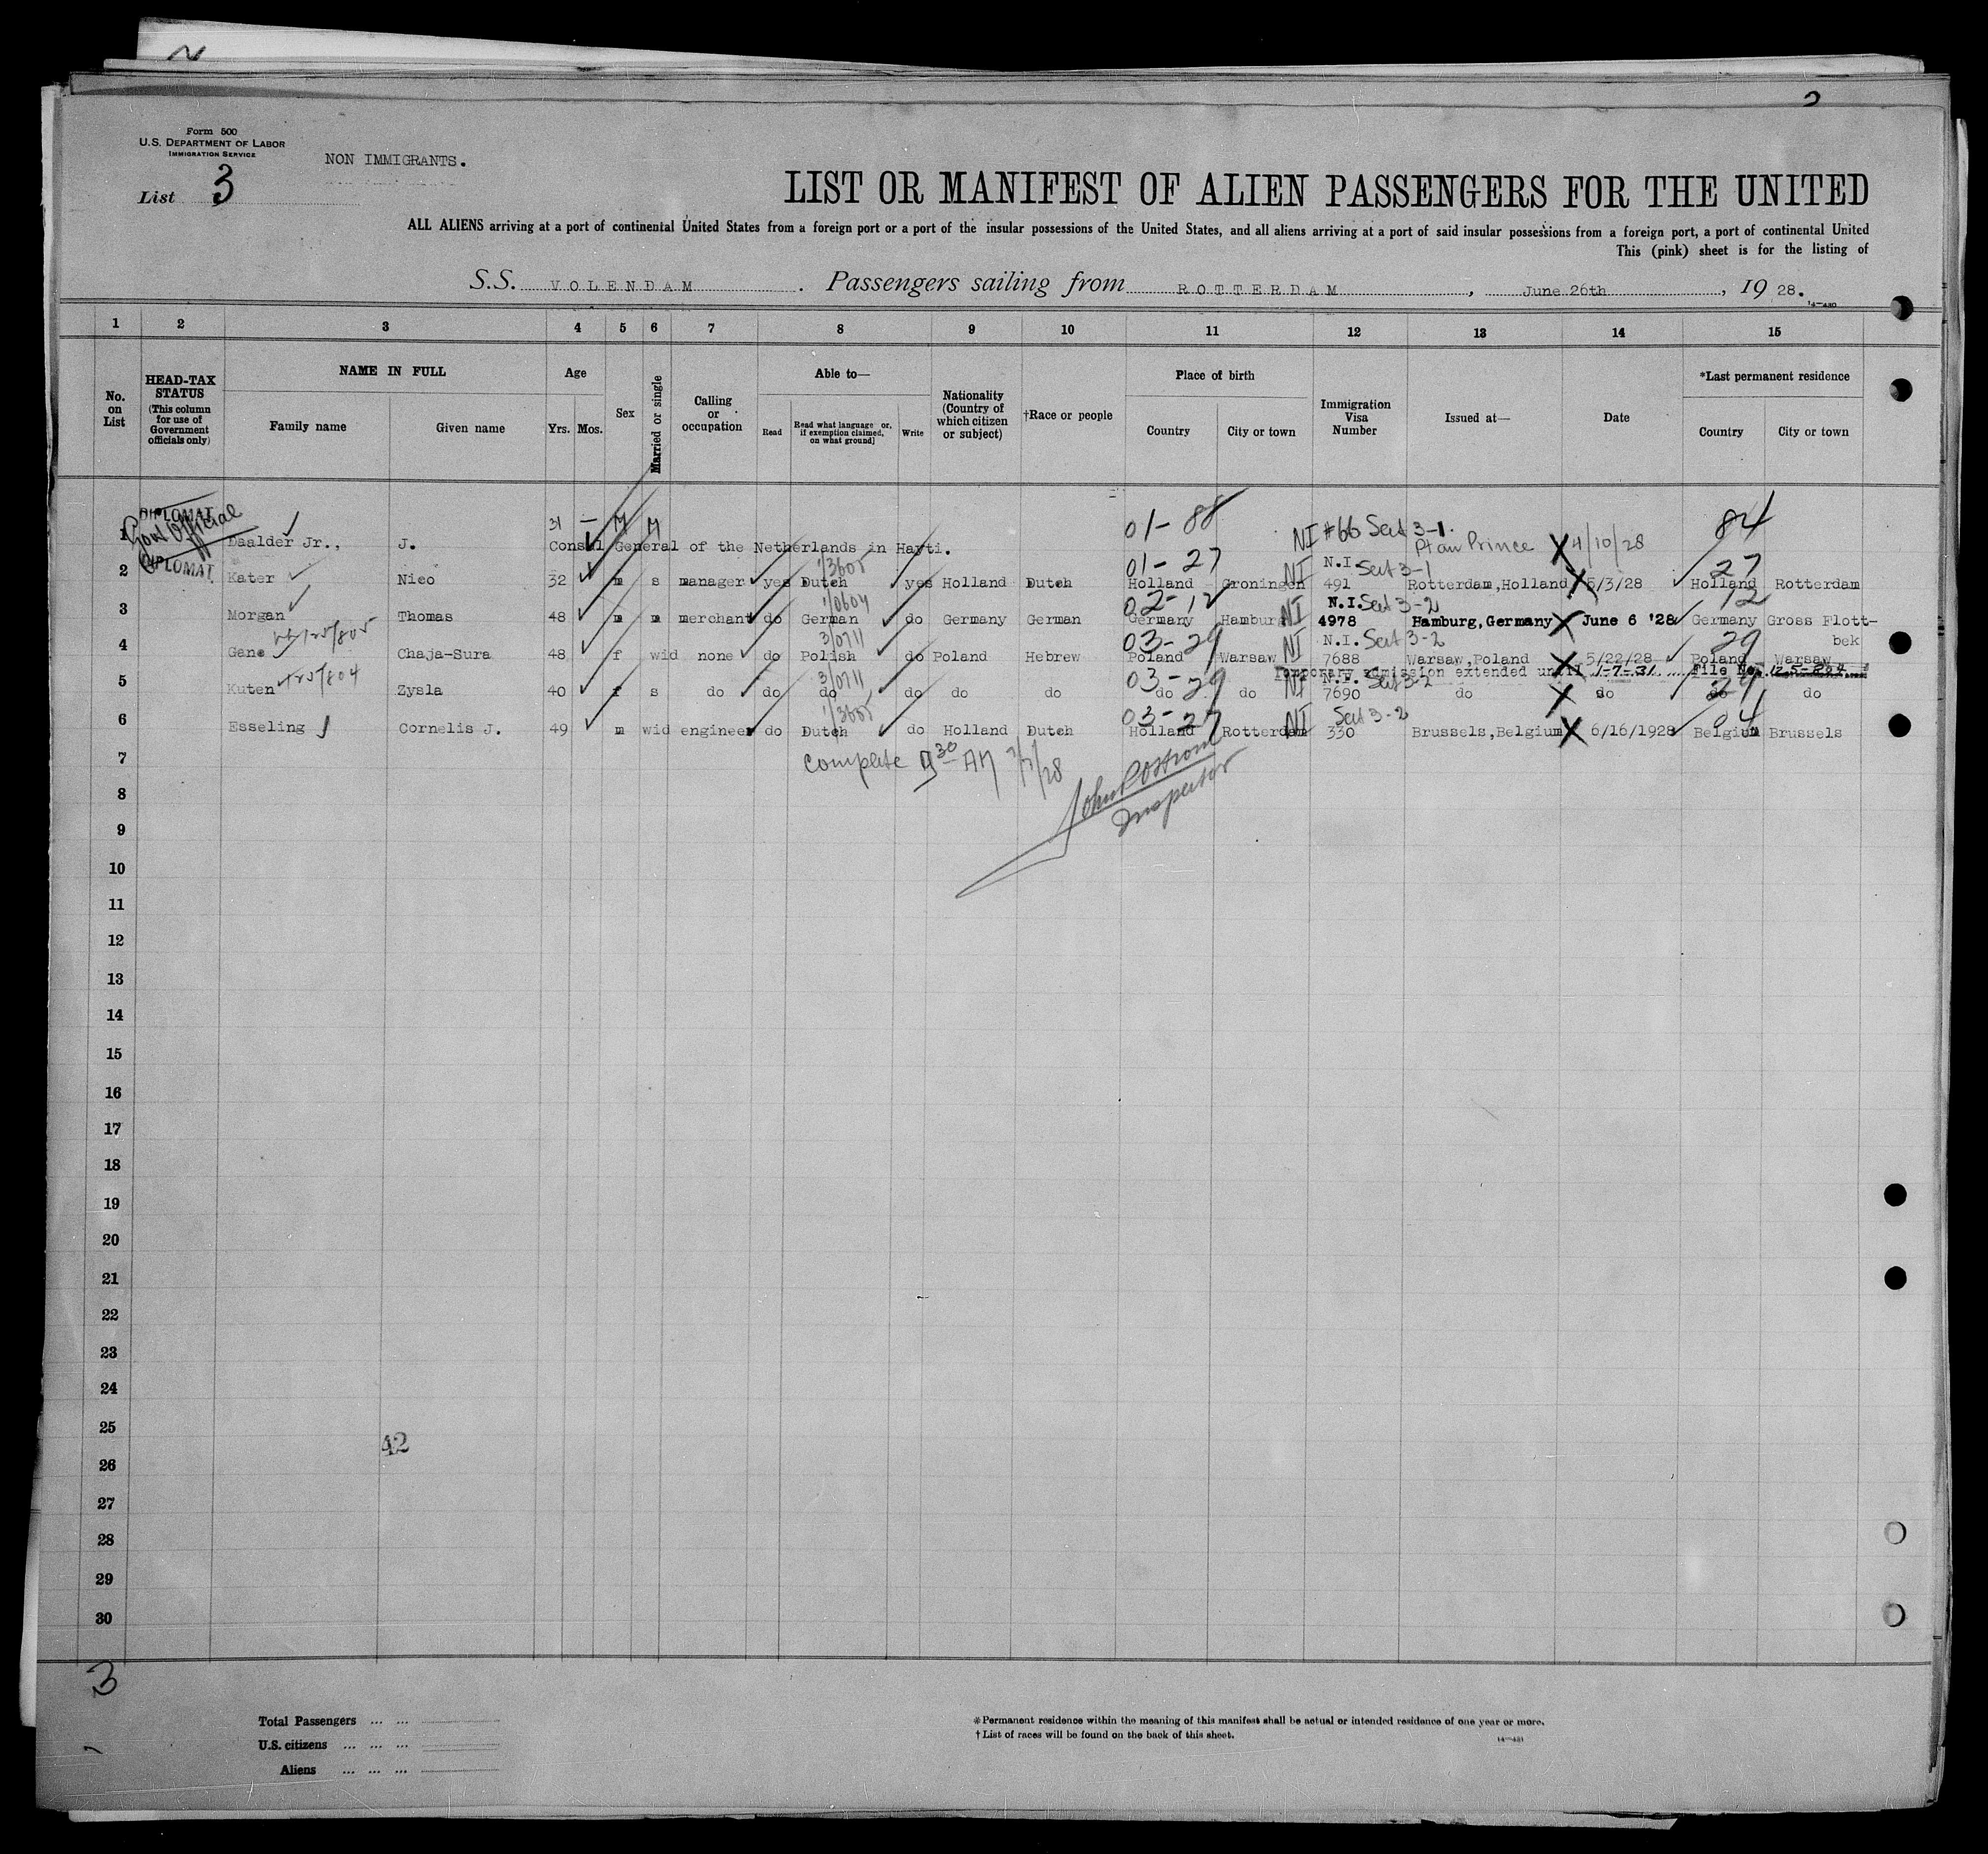 Form 500
U.S. DEPARTMENT OF LABOR
IMMIGRATION SERVICE
NON IMMIGRANTS.
List 3
LIST OR MANIFEST OF ALIEN PASSENGERS FOR THE UNITED
ALL ALIENS arriving at a port of continental United States from a foreign port or a port of the insular possessions of the United States, and all aliens arriving at a port of said insular possessions from a foreign port, a port of continental United
This (pink) sheet is for the listing of
S.S. VOLENDAM . Passengers sailing from ROTTERDAM , June 26th , 19 28.
14—430
1 2 3 4 5 6 7 8 9 10 11 12 13 14 15
No. on List
HEAD-TAX STATUS (This column for use of Government officials only)
NAME IN FULL
Family name Given name
Age
Yrs. Mos.
Sex
Married or single
Calling or occupation
Able to—
Read Read what language or, if exemption claimed, on what ground] Write
Nationality (Country of which citizen or subject)
†Race or people
Place of birth
Country City or town
Immigration Visa Number
Issued at—
Date
*Last permanent residence
Country City or town
DIPLOMAT
Govt Official
01-88 NI #66 Sect 3-1. 84
1 Daalder Jr., J. 31 — M M Consul General of the Netherlands in Hayti. Pt au Prince 4/10/28
DIPLOMAT
1/3605 01-27 NI N.I. Sect 3-1 27
2 Kater Nico 32 m s manager yes Dutch yes Holland Dutch Holland Groningen 491 Rotterdam,Holland 5/3/28 Holland Rotterdam
1/0604 02-12 NI N.I. Sect 3-2 12
3 Morgan Thomas 48 m m merchant do German do Germany German Germany Hamburg 4978 Hamburg,Germany June 6 '28 Germany Gross Flott-
bek
125/805 3/0711 03-29 NI N.I. Sect 3-2 29
4 Gene Chaja-Sura 48 f wid none do Polish do Poland Hebrew Poland Warsaw 7688 Warsaw,Poland 5/22/28 Poland Warsaw
Temporary admission extended until 1-7-31 File No.
125/804 3/0711 03-29 NI N.I. Sect 3-2 29
5 Kuten Zysla 40 f s do do do do do do do do 7690 do do do do
1/3605 03-27 NI Sect 3-2 04
6 Esseling Cornelis J. 49 m wid engineer do Dutch do Holland Dutch Holland Rotterdam 330 Brussels,Belgium 6/16/1928 Belgium Brussels
7 complete 9 30 AM 7/7/28
8
Inspector
9
10
11
12
13
14
15
16
17
18
19
20
21
22
23
24
25
42
26
27
28
29
30
3
Total Passengers ... ...
U.S. citizens ... ... ...
Aliens ... ... ...
*Permanent residence within the meaning of this manifest shall be actual or intended residence of one year or more.
†List of races will be found on the back of this sheet.
14—431